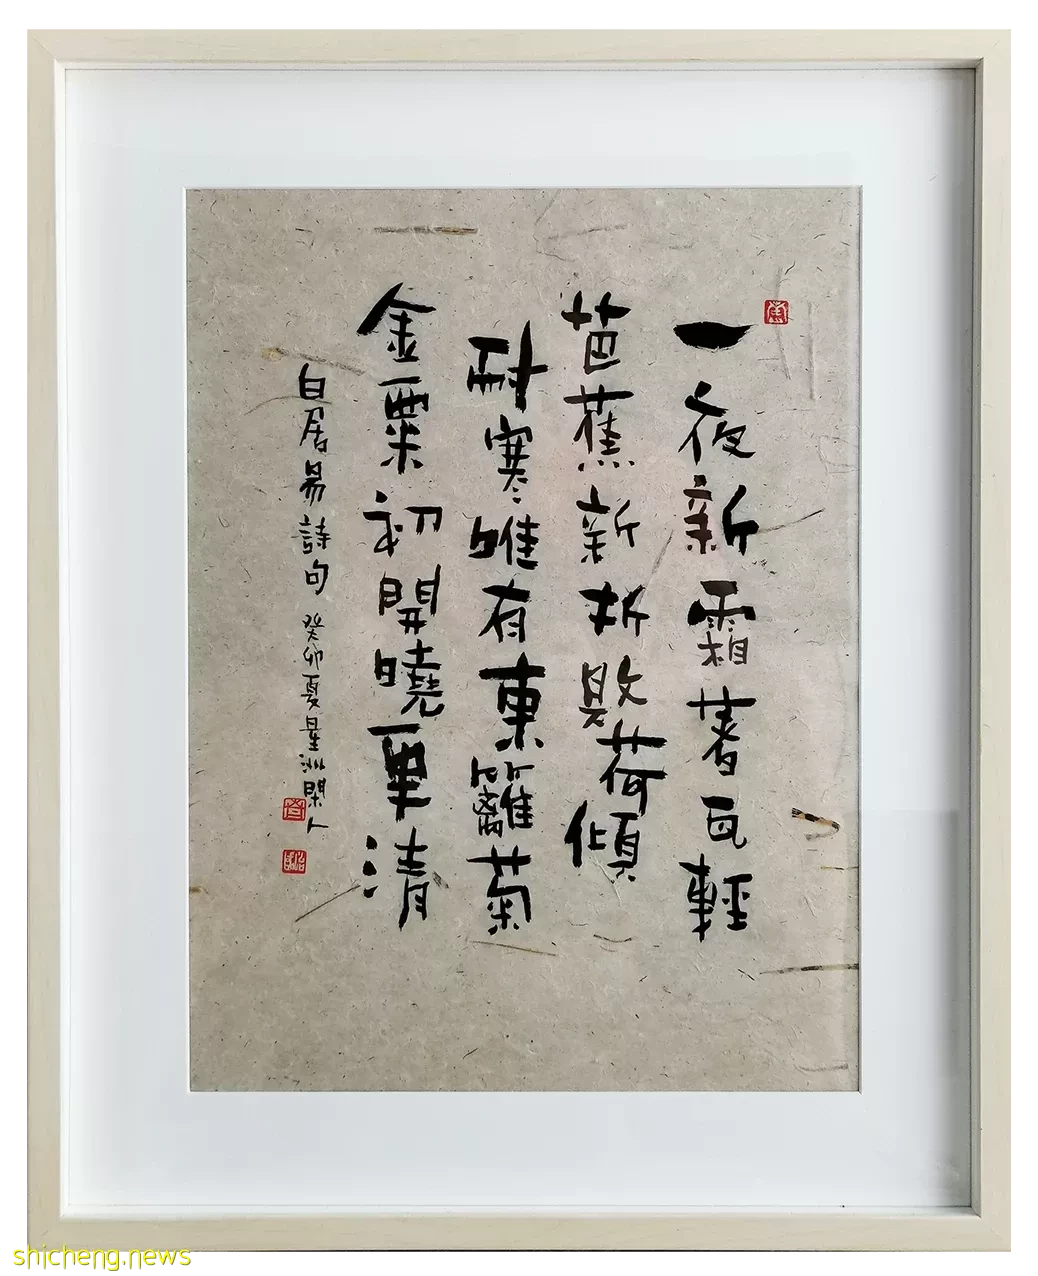 一夜新霜著瓦輕
芭蕉新折敗荷傾
耐寒唯有東籬菊
金粟初開曉更清
白居易詩句 癸卯夏星洲閑人
shicheng.news